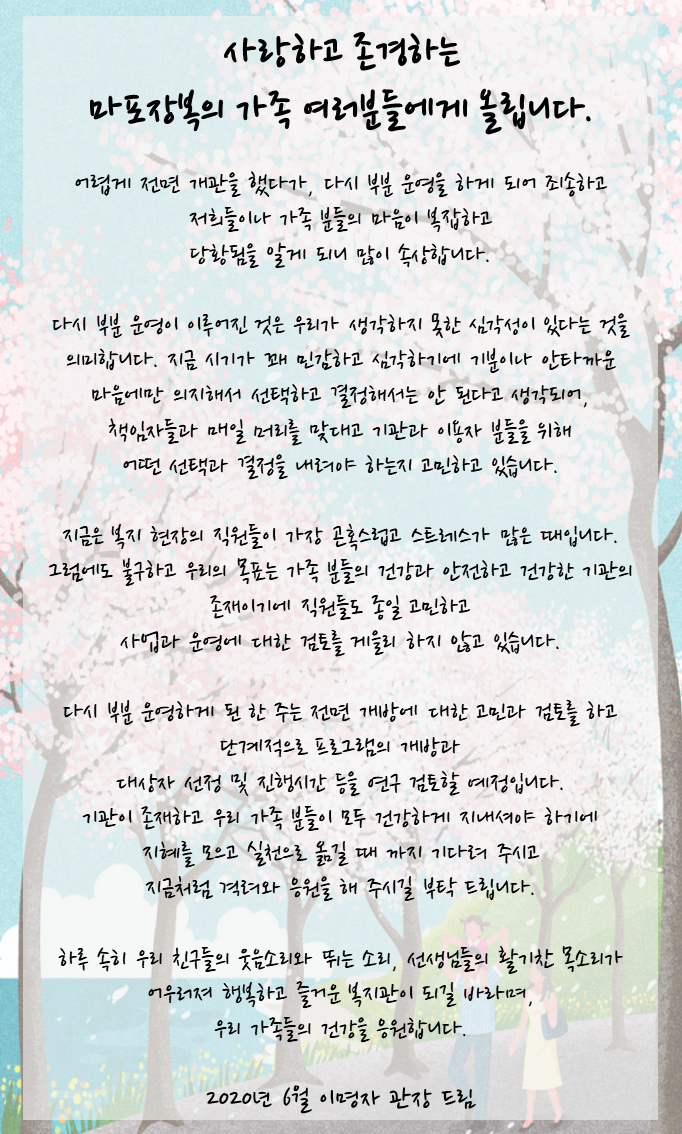 사랑하고 존경하는
마포장복의 가족 여러분들에게 올립니다.
어렵게 전면 개관을 했다가, 다시 부분 운영을 하게 되어 죄송하고
저희들이나 가족 분들의 마음이 복잡하고
당황됨을 알게 되니 많이 속상합니다.
다시 부분 운영이 이루어진 것은 우리가 생각하지 못한 심각성이 있다는 것을
의미합니다. 지금 시기가 꽤 민감하고 심각하기에 기분이나 안타까운
마음에만 의지해서 선택하고 결정해서는 안 된다고 생각되어,
책임자들과 매일 머리를 맞대고 기관과 이용자 분들을 위해
어떤 선택과 결정을 내려야 하는지 고민하고 있습니다.
지금은 복지 현장의 직원들이 가장 곤혹스럽고 스트레스가 많은 때입니다.
그럼에도 불구하고 우리의 목표는 가족 분들의 건강과 안전하고 건강한 기관의
존재이기에 직원들도 종일 고민하고
사업과 운영에 대한 검토를 게을리 하지 않고 있습니다.
다시 부분 운영하게 된 한 주는 전면 개방에 대한 고민과 검토를 하고
단계적으로 프로그램의 개방과
대상자 선정 및 진행시간 등을 연구 검토할 예정입니다.
기관이 존재하고 우리 가족 분들이 모두 건강하게 지내셔야 하기에
지혜를 모으고 실천으로 옮길 때 까지 기다려 주시고
지금처럼 격려와 응원을 해 주시길 부탁 드립니다.
하루 속히 우리 친구들의 웃음소리와 뛰는 소리, 선생님들의 활기찬 목소리가
어우러져 행복하고 즐거운 복지관이 되길 바라며,
우리 가족들의 건강을 응원합니다.
2020년 6월 이명자 관장 드림